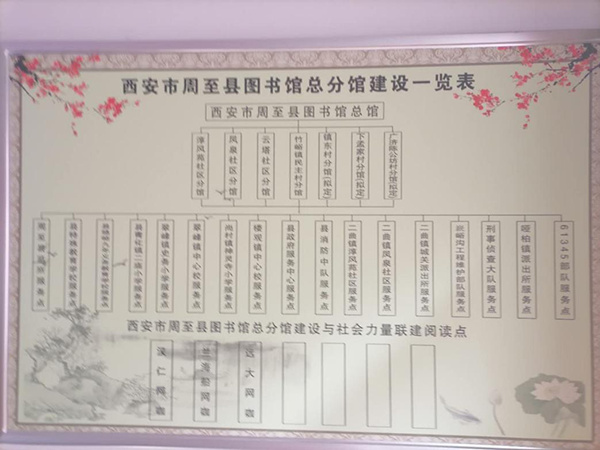 西安市周至县图书馆总分馆建设一览表
西安市周至县图书馆总馆
漳风苑社区分馆
风泉社区分馆
云塔社区分馆
竹峪镇民主村分馆
镇东村分馆(拟定)
下孟家村分馆(拟定)
县特殊教育学校服务点
县青化镇二连小学服务点
翠峰镇史务小学服务点
翠峰镇中心校服务点
尚村镇神灵寺小学服务点
楼观镇中心校服务点
县政府服务中心服务点
县消防中队服务点
二曲镇漳风苑社区服务点
二曲镇风泉社区服务点
二曲镇城关派出所服务点
刑事侦查大队服务点
哑柏镇派出所服务点
61345部队服务点
西安市周至县图书馆总分馆建设与社会力量联建阅读点
网咖
网咖
远大网咖